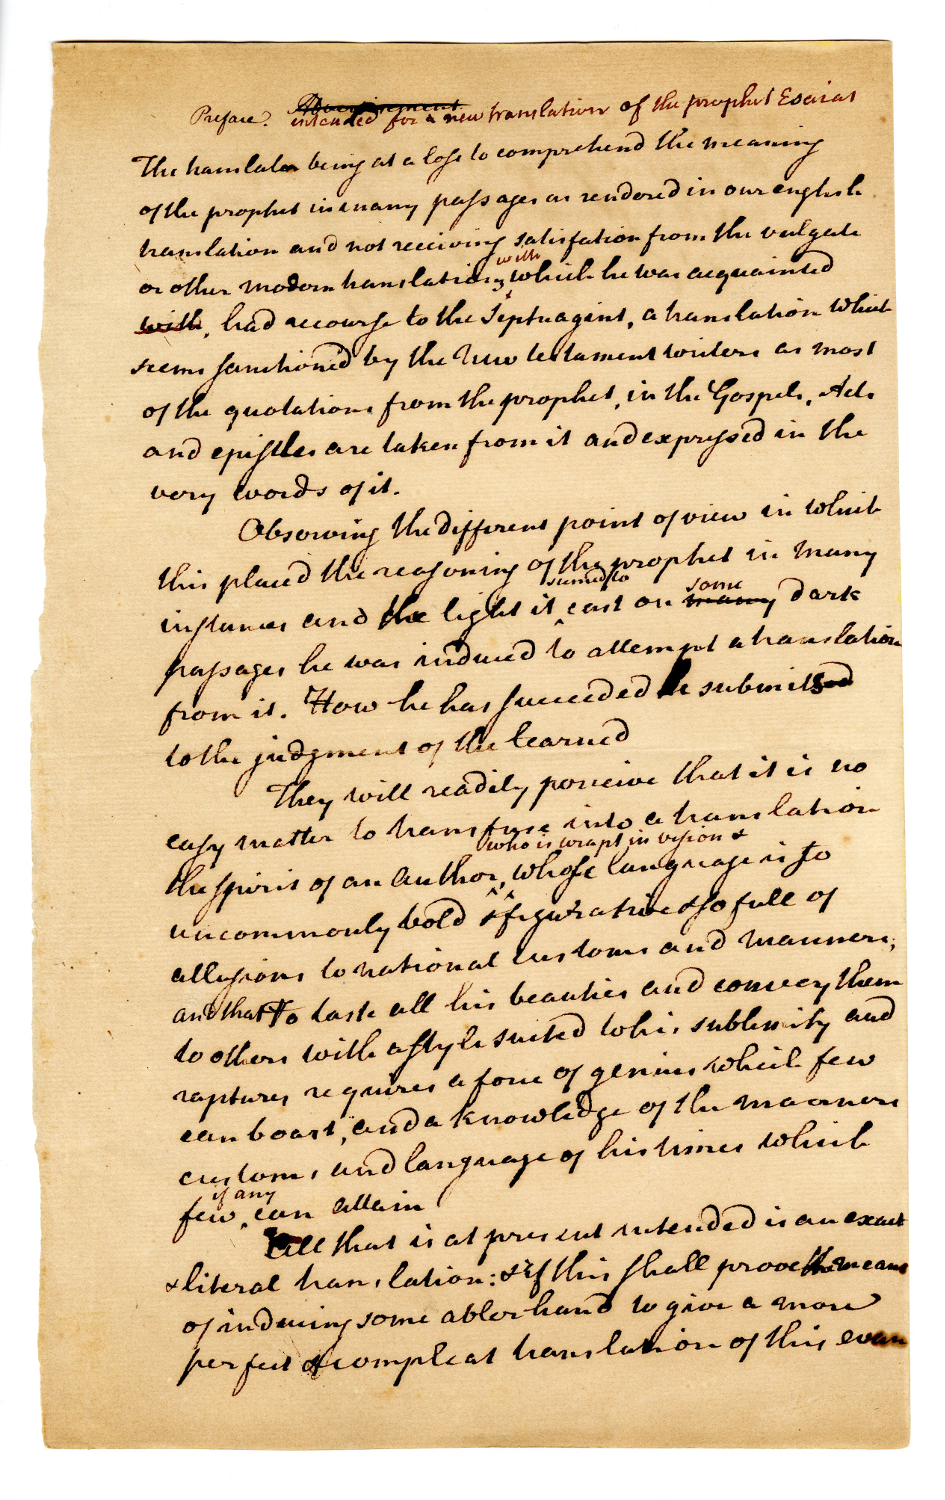 Preface. Advertisement
intended for a new translation of the prophet Esaias
The translator being at a loss to comprehend the meaning
of the prophet in many passages as rendered in our english
translation and not receiving satisfation from the vulgate
or other modern translations with which he was acquainted
with, had recourse to the Septuagint, a translation which
seems sanctioned by the New testament writers as most
of the quotations from the prophet, in the Gospels, Acts
and epistles are taken from it and expressed in the
very words of it.
Observing the different point of view in which
this placed the reasoning of the prophet in many
instances and the light it seemed to cast on many some dark
passages he was induced to attempt a translation
from it. How he has succeeded is submitted
to the judgment of the learned
They will readily perceive that it is no
easy matter to transfuse into a translation
the spirit of an author, who is wrapt in vision & whose language is so
uncommonly bold & figurative & so full of
allusions to national customs and manners;
and that to taste all his beauties and convey them
to others with a style suited to his sublimity and
raptures requires a force of genius which few
can boast, and a knowledge of the manners
customs and language of his times which
few, if any can attain
All that is at present intended is an exact
& literal translation: & if this shall prove the means
of inducing some abler hand to give a more
perfect & compleat translation of this evan